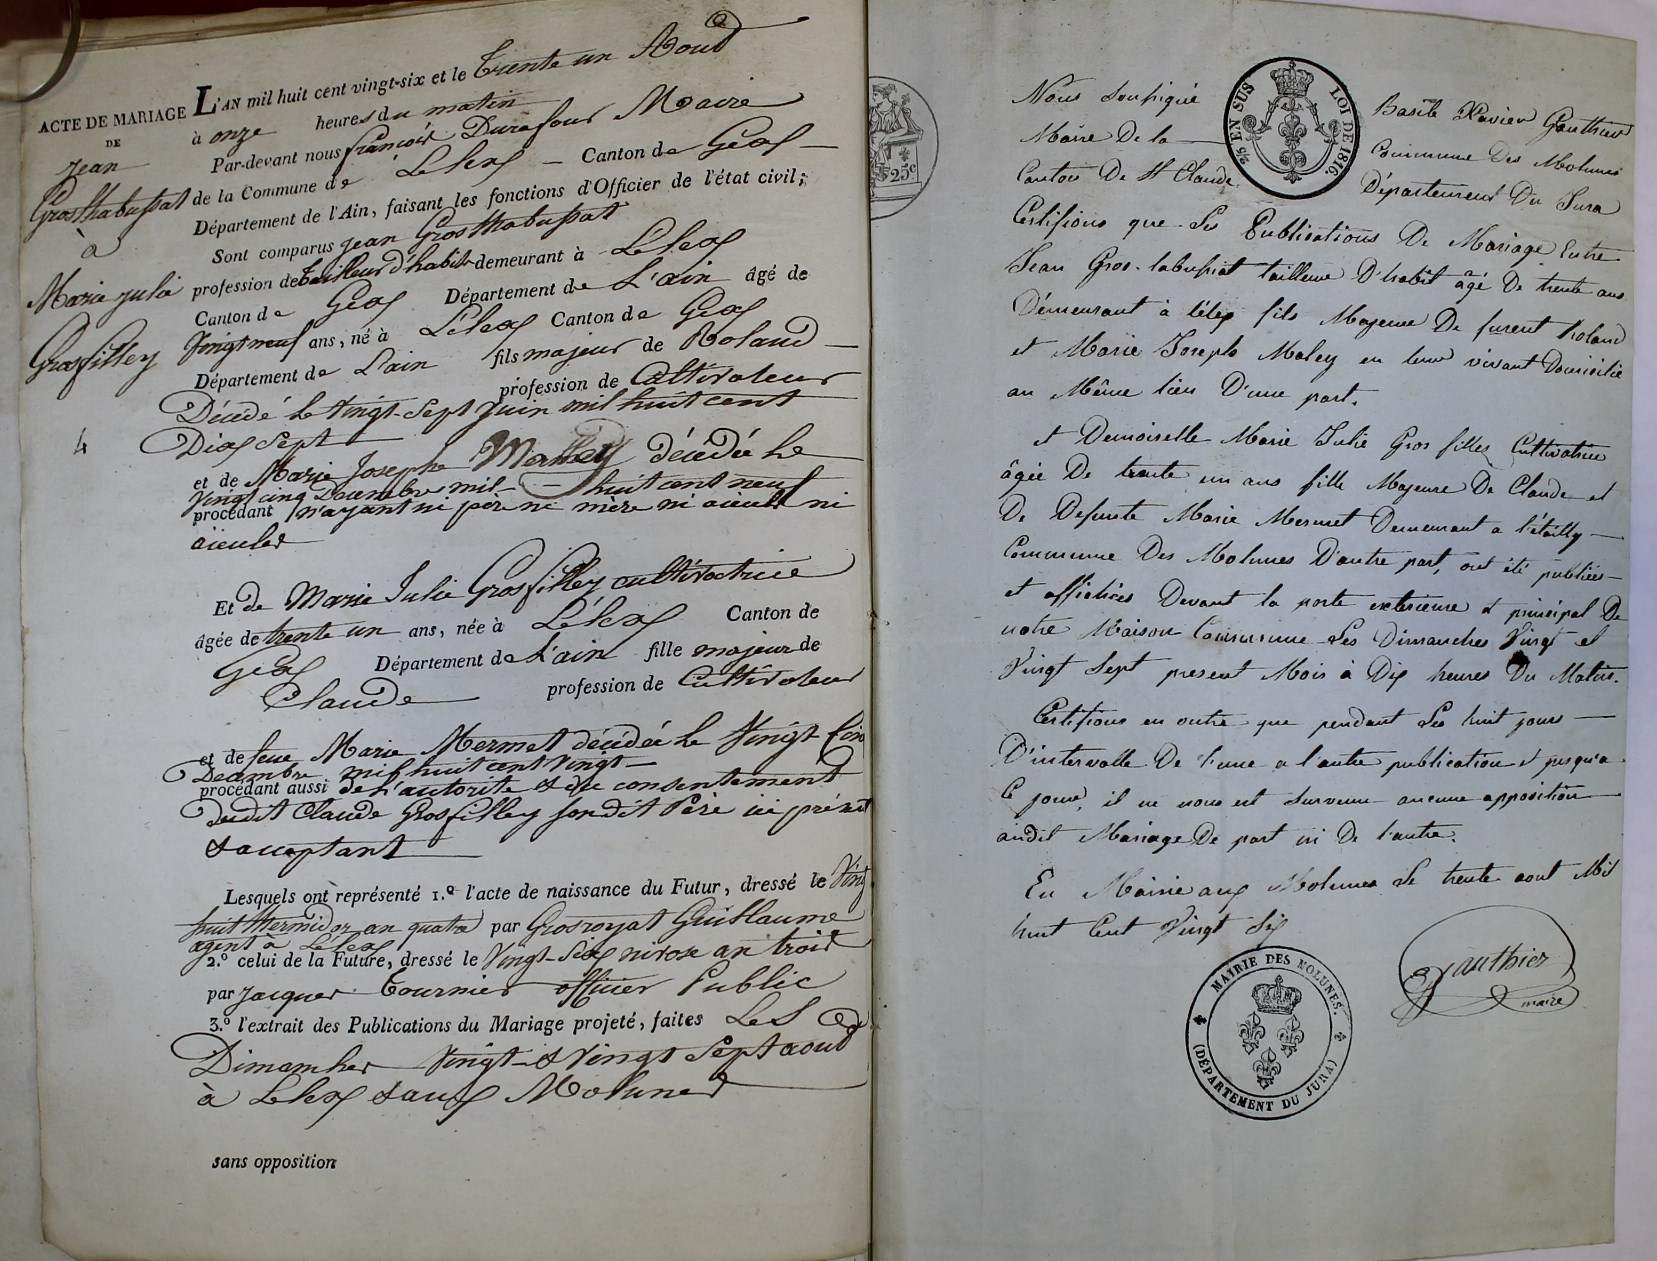 ACTE DE MARIAGE
DE
Jean
Grosthabussiat
à
Marie julie
Grosfilley
4
L'AN mil huit cent vingt-six et le trente un Aoud
à onze heures du matin
Par-devant nous françois Durafour Maire
de la Commune de Lelex Canton de Gex
Département de l'Ain, faisant les fonctions d'Officier de l'état civil;
Sont comparus jean Grosthabussiat
profession de tailleur d'habits demeurant à Lelex
Canton de Gex Département de L'ain âgé de
Vingt neuf ans, né à Lelex Canton de Gex
Département de L'ain fils majeur de Roland
profession de Cultivateur
Décédé le vingt-sept juin mil huit cent
Dix sept
et de Marie Josephe décédée le
Vingt cinq Décembre mil huit cent neuf
procédant n'ayant ni père ni mère ni aieulx ni
aieules
Et de Marie Julie Grosfilley cultivatrice
âgée de trente un ans, née à Lélex Canton de
Gex Département de L'ain fille majeur de
Claude profession de Cultivateur
et de feue Marie Mermet décédée le Vingt Cinq
Decembre mil huit cent vingt
procédant aussi de L'autorité & du consentement
dudit Claude Grosfilley sondit Père ici présent
& acceptant
Lesquels ont représenté 1.º l'acte de naissance du Futur, dressé le Vingt
huit thermidor an quatre par Grosroyat Guillaume
agent à Lélex
2.º celui de la Future, dressé le Vingt-Six nivose an trois
par jacques Tournier officier Public
3.º l'extrait des Publications du Mariage projeté, faites Les
Dimanches Vingt & Vingt Sept aoud
à Lelex & aux Molunes
sans opposition
25c
Nous Soussigné Basile Xavier Gauthier
Maire De la Commune Des Molunes
Canton De St Claude Département Du Jura
25/ EN SUS LOI DE 1816.
Certifions que Les Publications De Mariage Entre
Jean Gros-tabussiat tailleur D'habit âgé De trente ans
Démeurant à Lélex fils Majeur De furent Roland
et Marie Joseph Maley en leur vivant Domicilié
au Même lieu D'une part.
et Demoiselle Marie Julie Gros filley Cultivatrice
âgée De trente un ans fille Majeure De Claude et
De Defunte Marie Mermet Demeurant a
Commune Des Molunes D'autre part, ont été publiées
et affichées Devant la porte exterieure & principal De
notre Maison Commune Les Dimanches Vingt et
Vingt Sept present Mois à Dix heures Du Matin.
Certifions en outre que pendant Les huit jours
D'intervalle De l'une a l'autre publication et jusqu'a
Ce jour, il ne nous est survenu aucune opposition
audit Mariage De part ni De l'autre.
En Mairie aux Molunes Le trente aout Mil
huit Cent Vingt Six
Gauthier
maire
MAIRIE DES MOLUNES.
(DÉPARTEMENT DU JURA)